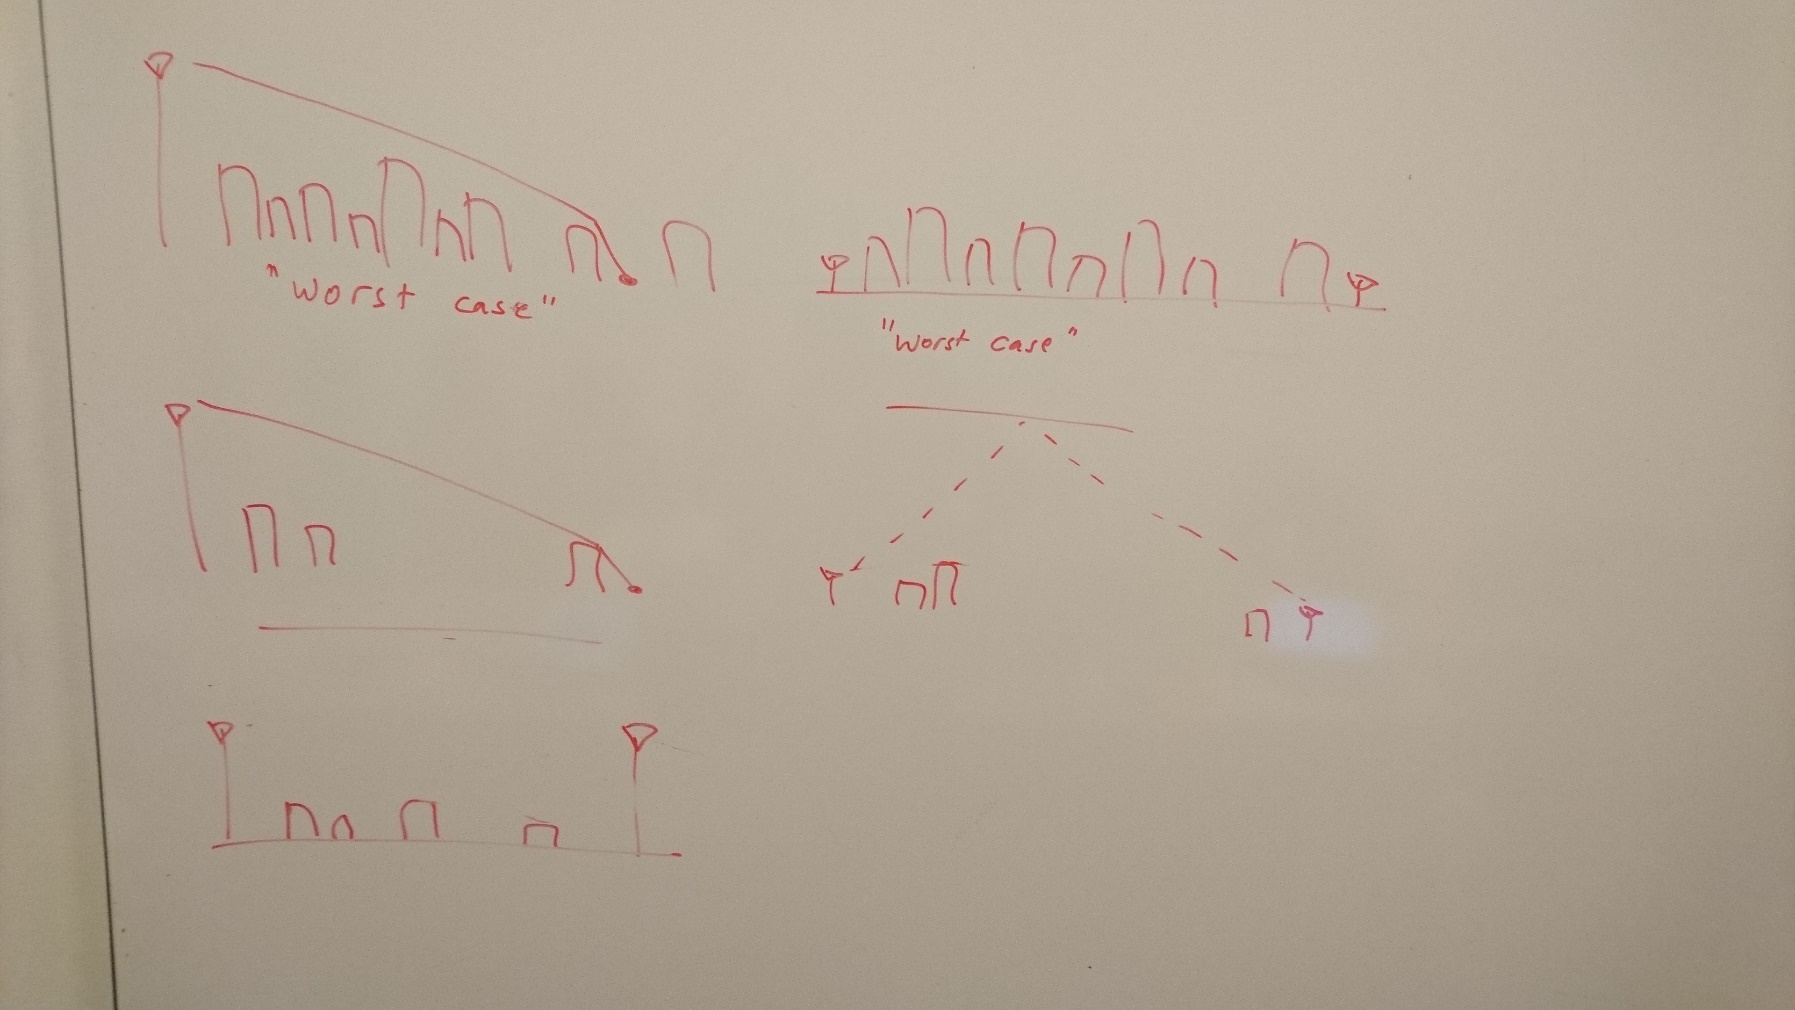 "worst case"
"worst case"